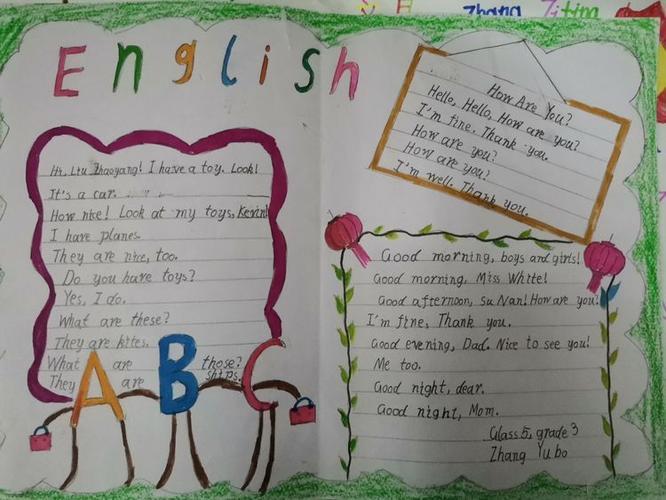 Zhang Zitim
English
Hi, Liu Zhaoyang! I have a toy. Look!
It's a car.
How nice! Look at my toys, Kevin!
I have planes.
They are nice, too.
Do you have toys?
Yes, I do.
What are these?
They are kites.
What are those?
They are ships.
A B C
How Are You?
Hello, Hello, How are you?
I'm fine, Thank you.
How are you?
How are you?
I'm well. Thank you.
Good morning, boys and girls!
Good morning, Miss White!
Good afternoon, Su Nan! How are you?
I'm fine, Thank you.
Good evening, Dad. Nice to see you!
Me too.
Good night, dear.
Good night, Mom.
Class 5, grade 3
Zhang Yu bo